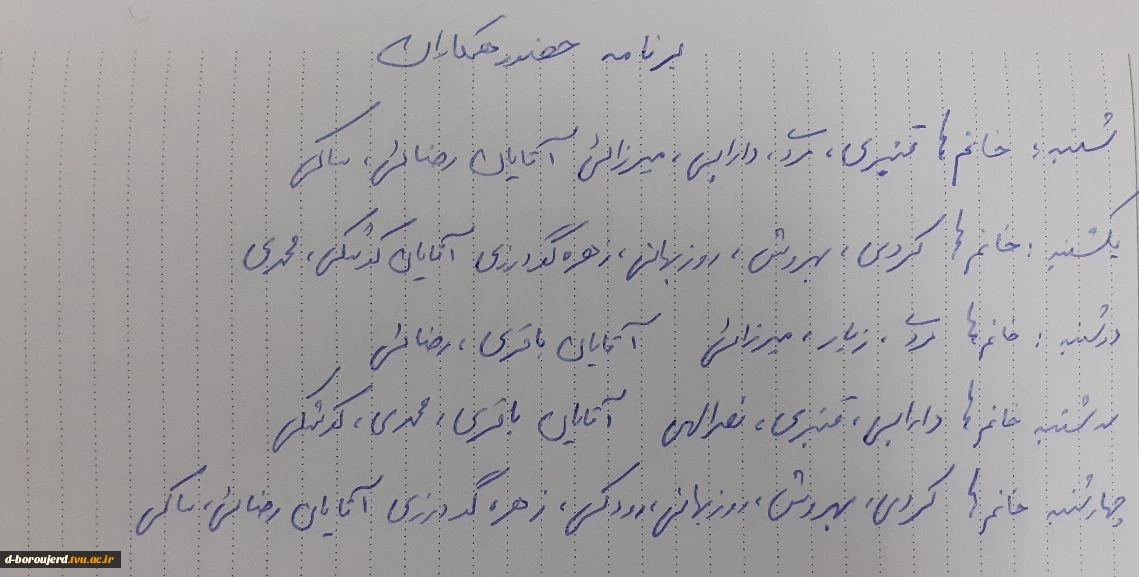 برنامه حضور همکاران
شنبه: خانم ها قنبری، ترک، دارابی، میرزائی آقایان رضائی، ساکی
یکشنبه: خانم ها کردی، بهروش، روزبهانی، زهره گودرزی آقایان کوشکی، محمدی
دوشنبه: خانم ها ترک، زیار، میرزائی آقایان باقری، رضائی
سه شنبه خانم ها دارابی، قنبری، نصرالهی آقایان باقری، محمدی، کوشکی
چهارشنبه خانم ها کردی، بهروش، روزبهانی، رودکی، زهره گودرزی آقایان رضائی، ساکی
d-boroujerd.tvu.ac.ir